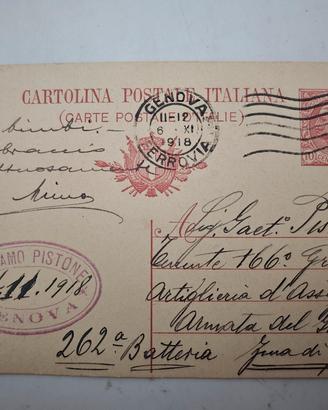 CARTOLINA POSTALE ITALIANA
(CARTE POSTALE D'ITALIE)
GENOVA
11-12
6 XI
1918
FERROVIA
10
bimbi
abbraccio
Mimo
AMO PISTONE
11.1918
GENOVA
Sig. Gaet.º Pis
Tenente 166º Gr
Artiglieria d'Ass
Armata del
262ª Batteria Zona di